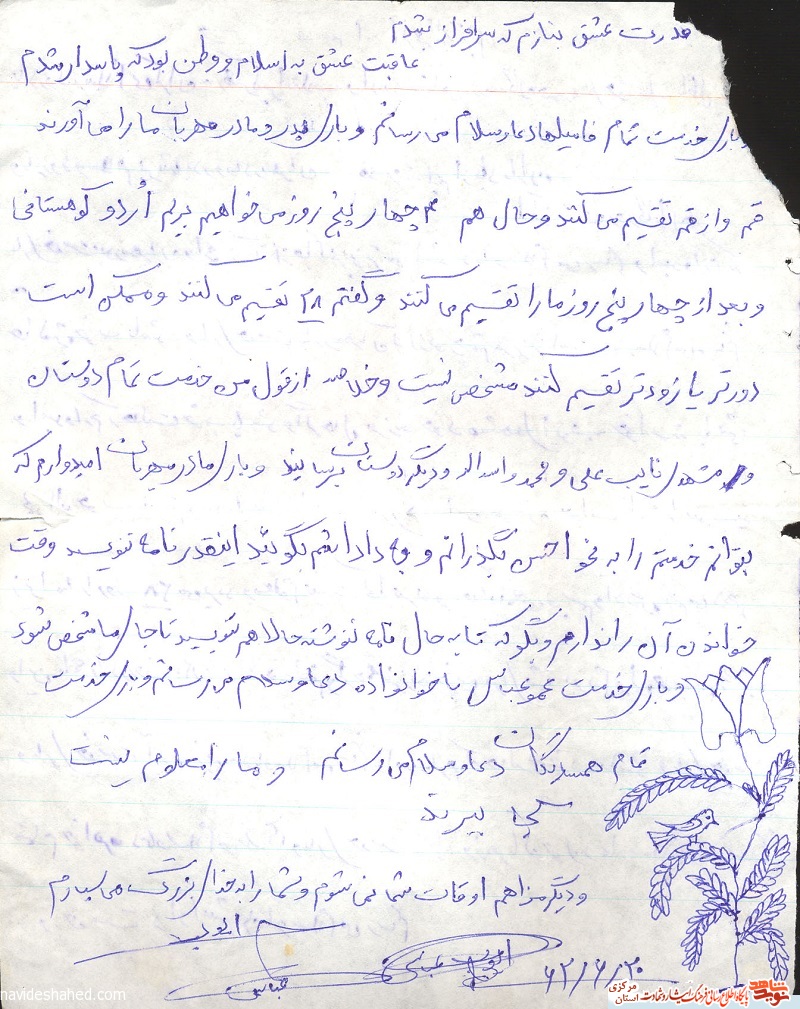 قدرت عشق بنازم که سرافراز شدم
عاقبت عشق به اسلام و وطن بود که پاسدار شدم
وبازل خدمت تمام فامیلها دعا و سلام می رسانم و بازل پدر و مادر مهربان ما را می آورند
قم و از قم تقسیم می کنند و حال هم ۴ چهار پنج روز می خواهیم بریم اُردو کوهستانی
و بعد از چهار پنج روز ما را تقسیم می کنند و گفتم ۲۸ تقسیم می کنند و ممکن است
دورتر یا زودتر تقسیم کنند مشخص نیست و خلاصه از قول من خدمت تمام دوستان
نایب علی و محمد و اسداله و دیگر دوستان برسانید و بازل مادر مهربان امیدوارم که
بتوانم خدمتم را به نحو احسن بگذرانم و به داداشم بگوئید اینقدر نامه ننویسد وقت
خواندن آن را ندارم و بگو که تا به حال نامه نوشته حالا هم ننویسید تا جال ما مشخص شود
و بازل خدمت عمو عباس با خوانواده دعا و سلام می رسانم و بازل خدمت
تمام همسدیگان دعا و سلام می رسانم و ما را معلوم نیست
کجا ببرند
و دیگر مزاهم اوقات شما نمی شوم و شما را به خدال بزرگ می سپارم
ایوب
ایوب عباسی
عباسی
۶۲/۶/۲۰
navideshahed.com
نوید شاهد
پایگاه اطلاع رسانی فرهنگ ایثار و شهادت
استان مرکزی